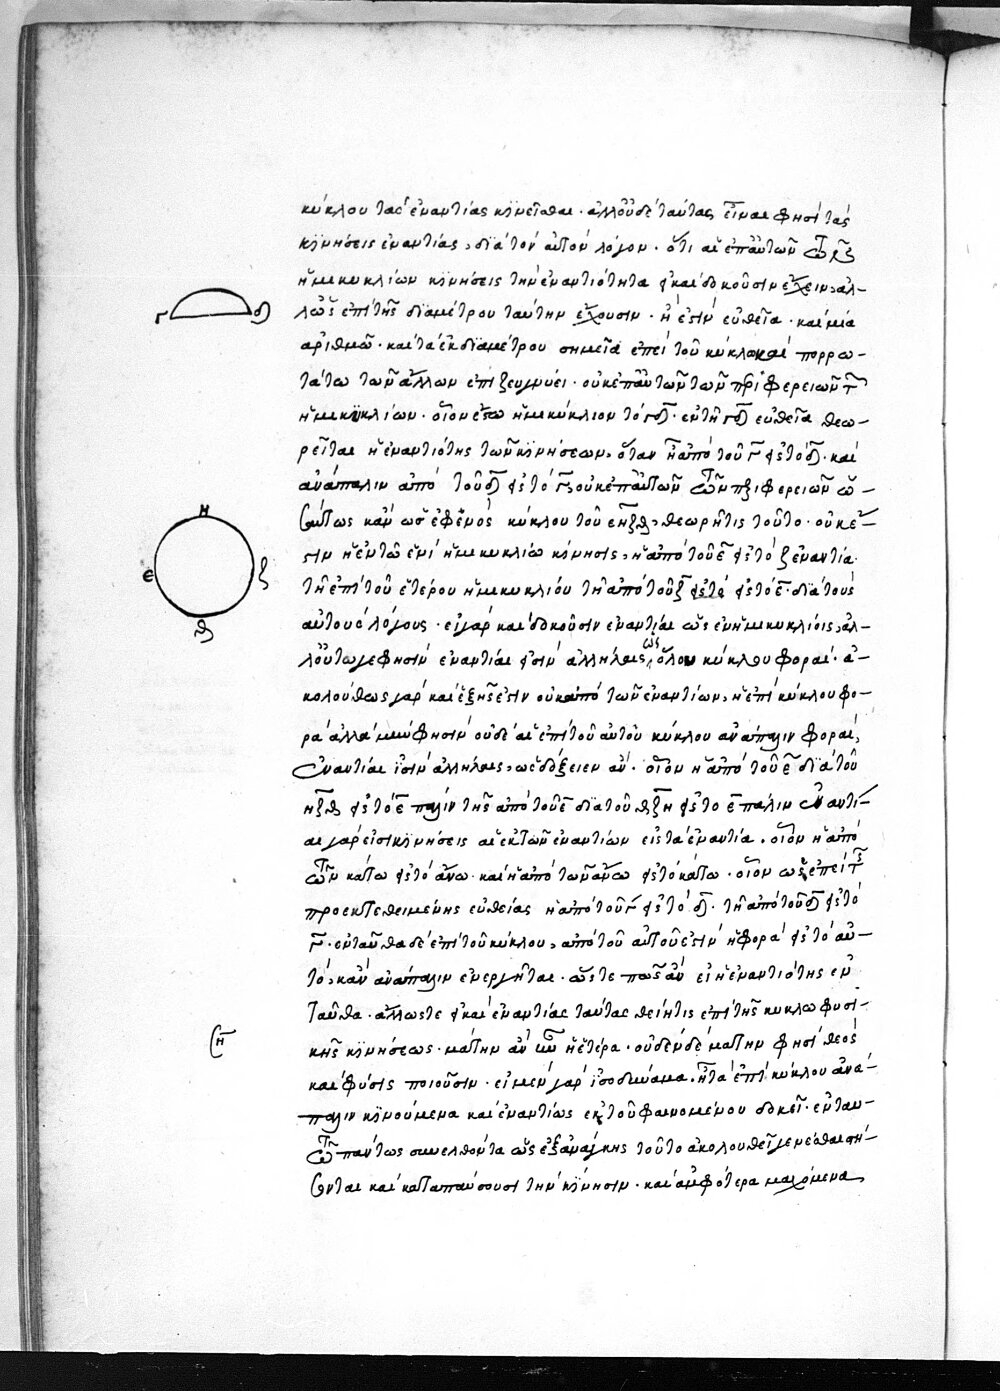 κύκλου τὰς ἐναντίας κινεῖσθαι · ἀλλ' οὐδὲ ταύτας εἶναι φησὶ τὰς
κινήσεις ἐναντίας, διὰ τὸν αὐτὸν λόγον · ὅτι αἱ ἐπ' αὐτῶν τῶν
ἡμικυκλίων κινήσεις τὴν ἐναντιότητα εἰ καὶ δοκοῦσιν ἔχειν, ἀλ-
λ' ὡς ἐπὶ τῆς διαμέτρου ταύτην ἔχουσιν · ἥ ἐστιν εὐθεῖα · καὶ μία
ἀριθμῷ · καὶ τὰ ἐκ διαμέτρου σημεῖα ἐπεὶ τοῦ κύκλου καὶ πορρω-
τάτω τῶν ἄλλων ἐπιζευγνύει · οὐκ ἐπ' αὐτῶν τῶν περιφερειῶν τῶν
ἡμικυκλίων · οἷον ἔστω ἡμικύκλιον τὸ γδ · ἐν τῇ γδ εὐθεῖα θεω-
ρεῖται ἡ ἐναντιότης τῶν κινήσεων, ὅταν ἡ ἀπὸ τοῦ γ εἰς τὸ δ · καὶ
ἀνάπαλιν ἀπὸ τοῦ δ εἰς τὸ γ, οὐκ ἐπ' αὐτῶν τῶν περιφερειῶν ὡ-
σαύτως κἂν ὡς ἐφ' ἑνὸς κύκλου τοῦ εηζθ, θεωρῇ τις τοῦτο · οὐκ ἔ-
στιν ἡ ἐν τῷ ἑνὶ ἡμικυκλίῳ κίνησις, ἡ ἀπὸ τοῦ ε εἰς τὸ ζ ἐναντία
τῇ ἐπὶ τοῦ ἑτέρου ἡμικυκλίου τῇ ἀπὸ τοῦ ζ εἰς τὸ εἰς τὸ ε · διὰ τοὺς
αὐτοὺς λόγους · εἰ γὰρ καὶ δοκοῦσιν ἐναντίαι ὡς ἐν ἡμικυκλίοις, ἀλ-
λ' οὔτω γε φησὶν ἐναντίαι εἰσὶν ἀλλήλαις ὡς ὅλου κύκλου φοραί · ἀ-
κολούθως γὰρ καὶ ἑξῆς ἐστιν οὐκ ἀπὸ τῶν ἐναντίων, ἡ ἐπὶ κύκλου φο-
ρά ἀλλὰ μὴν φησὶν οὐδὲ αἱ ἐπὶ τοῦ αὐτοῦ κύκλου ἀνάπαλιν φοραί,
ἐναντίαι εἰσὶν ἀλλήλαις, ὡς δόξειεν ἄν · οἷον ἡ ἀπὸ τοῦ ε διὰ τοῦ
ηζθ εἰς τὸ ε πάλιν τῆς ἀπὸ τοῦ ε διὰ τοῦ θζη εἰς τὸ ε πάλιν ἐναντί-
αι γὰρ εἰσι κινήσεις αἱ ἐκ τῶν ἐναντίων εἰς τὰ ἐναντία · οἷον ἡ ἀπὸ
τῶν κάτω εἰς τὸ ἄνω · καὶ ἡ ἀπὸ τῶν ἄνω εἰς τὸ κάτω · οἷον ὡς ἐπὶ τῆς
προεκτεθειμένης εὐθείας ἡ ἀπὸ τοῦ γ εἰς τὸ δ · τῇ ἀπὸ τοῦ δ εἰς τὸ
γ · ἐνταῦθα δὲ ἐπὶ τοῦ κύκλου, ἀπὸ τοῦ αὐτοῦ ἐστιν ἡ φορὰ εἰς τὸ αὐ-
τό, κἂν ἀνάπαλιν ἐνεργῆται · ὥστε πῶς ἂν εἴη ἐναντιότης ἐν
ταῦθα · ἄλλως τε εἰ καὶ ἐναντίας ταύτας θείη τις ἐπὶ τῆς κύκλῳ φυσι-
(η κῆς κινήσεως · μάτην ἂν ἦν ἡ ἑτέρα · οὐδὲν δὲ μάτην φησὶ θεὸς
καὶ φύσις ποιοῦσιν · εἰ μὲν γὰρ ἰσοδύναμα ἦ τὰ ἐπὶ κύκλου ἀνά-
παλιν κινούμενα καὶ ἐναντίως ἐκ τοῦ φαινομένου δοκεῖ · ἐνταυ-
θ πάντως συνελθόντα ὡς ἐξ ἀνάγκης τοῦτο ἀκολουθεῖ γενέσθαι στή-
σονται καὶ καταπαύσουσι τὴν κίνησιν · καὶ ἀμφότερα μαχόμενα
γ δ
η
ε ζ
θ